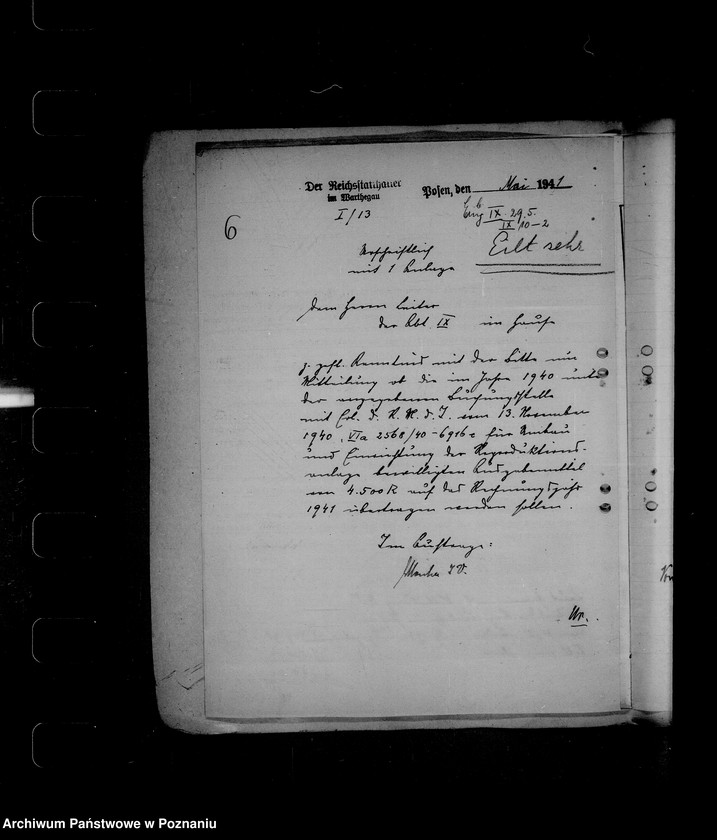 Der Reichsstatthalter
im Warthegau
I/13
Posen, den Mai 1941
Eing IX 29.5.
IX 10-2
6
Eilt sehr
Urschriftlich
mit 1 Anlage
dem Herrn Leiter
der Abt. IX im Hause
z. gefl. Kenntnis mit der Bitte um
Mitteilung ob die im Jahre 1940 unter
der angegebenen Buchungsstelle
mit Erl. d. R. M. d. I. vom 13. November
1940, VIa 2568/40-6916 c für Umbau
und Einrichtung der Reproduktions-
anlage bewilligten Ausgabemittel
von 4.500 R auf das Rechnungsjahr
1941 übertragen werden sollen.
Im Auftrage:
Archiwum Państwowe w Poznaniu